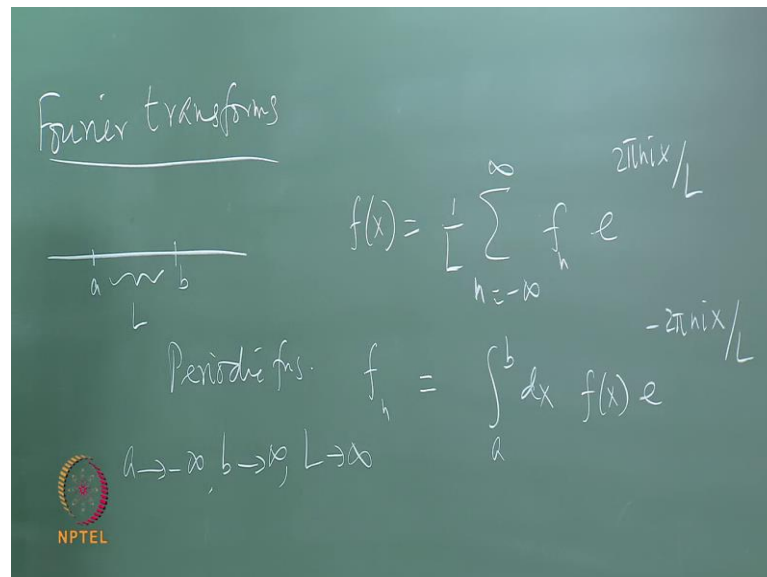 Fourier transforms
f(x) = 1/L ∑_{n=-∞}^{∞} f_n e^{2πnix/L}
a b
L
Periodic fns. f_n = ∫_a^b dx f(x) e^{-2πnix/L}
a→-∞, b→∞, L→∞
NPTEL